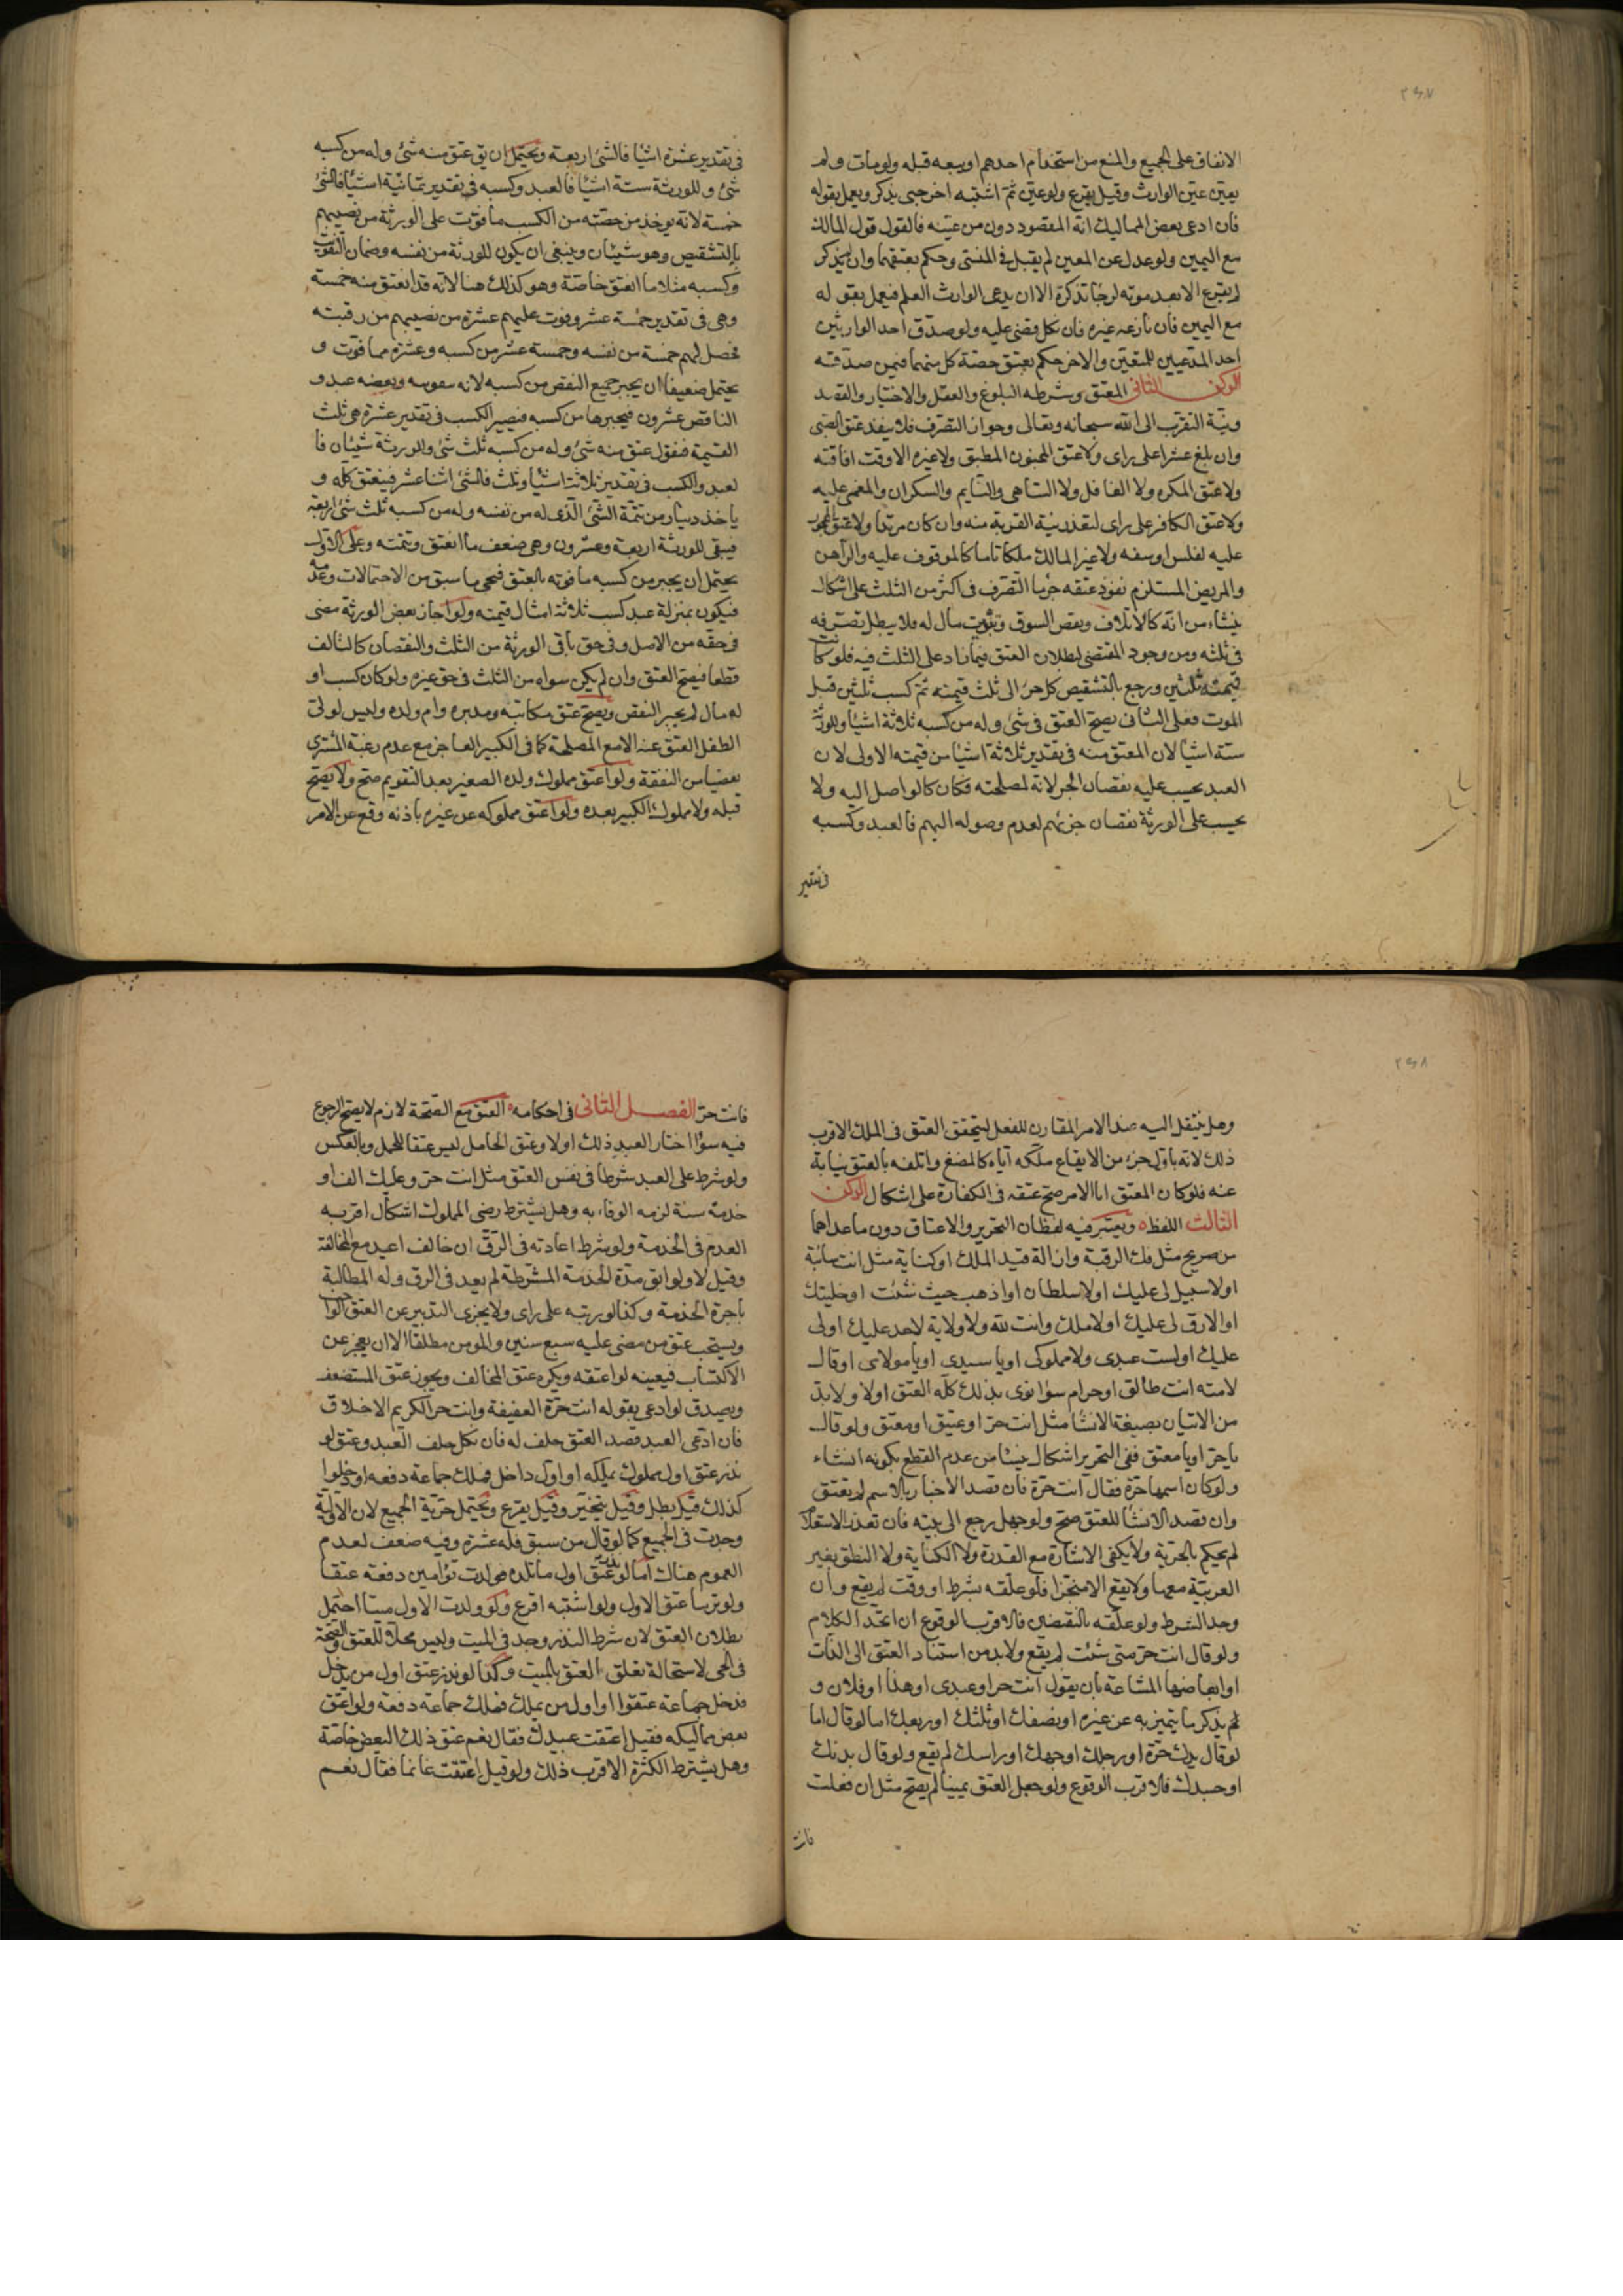 ٢٤٧
الانفاق على الجميع والمنع من استخدام احدهم او بيعه قبله ولو مات ولم
يعين عين الوارث وقيل يقرع ولو عين ثم اشتبه اخر حتى يذكر ويعمل بقوله
فان ادعى بعض المماليك انه المقصود دون من عينه فالقول قول المالك
مع اليمين ولو عدل عن المعين لم يقبل في المنسى وحكم بعتقهما وان لم يذكر
لم يقرع الا بعد موته لرجا تذكره الا ان يدعى الوارث العلم فيعمل بقوله
مع اليمين فان نازعه غيره فان نكل قضى عليه ولو صدق احد الوارثين
احد المدعيين للتعين والاخر حكم بعتق حصة كل منهما فيمن صدقه
الركن الثانى المعتق وشرطه البلوغ والعقل والاختيار والقصد
ونية التقرب الى الله سبحانه وتعالى وجواز التصرف فلا ينفذ عتق الصبى
وان بلغ عشرا على راى ولا عتق المجنون المطبق ولا غيره الا وقت افاقته
ولا عتق المكره ولا الغافل ولا الساهى والنايم والسكران والمغمى عليه
ولا عتق الكافر على راى لتعذر نية القربة منه وان كان مرتدا ولا عتق المحجور
عليه لفلس او سفه ولا غير المالك ملكا تاما كالموقوف عليه والراهن
والمريض المستلزم نفوذ عتقه جزما التصرف فى اكثر من الثلث على اشكال
ينشاء من انه كالاتلاف ونقص السوق وتفويت مال له فلا يبطل تصرفه
في ثلثه ومن وجود المقتضى لبطلان العتق فيما زاد على الثلث فيه فلو كانت
قيمته ثلثين ورجع بالتشقيص كل جزء الى ثلث قيمته ثم كسب ثلثين قبل
الموت فعلى الثانى يصح العتق فى شئ وله من كسبه ثلاثة اشيا وللورثة
ستة اشيا لان المعتق منه فى تقدير ثلاثة اشيا من قيمته الاولى لان
العبد يحسب عليه نقصان الجزء لانه لمصلحته فكان كالواصل اليه ولا
يحسب على الورثة نقصان جزئهم لعدم وصوله اليهم فالعبد وكسبه
فى تقدير
فى تقدير عشرة اشيا فالشئ اربعة ويحتمل ان يق عتق منه شئ وله من كسبه
شئ وللورثة ستة اشيا فالعبد وكسبه فى تقدير ثمانية اشيا فالشئ
خمسة لانه يوخذ من حصته من الكسب ما فوت على الورثة من نصيبهم
بالتشقيص وهو شيئان وينبغى ان يكون للورثة من نفسه وضمان التفويت
وكسبه مثلا ما انعتق خاصة وهو كذلك هنا لانه قد انعتق منه خمسة
وهى فى تقدير خمسة عشر وفوت عليهم عشرة من نصيبهم من رقبته
فحصل لهم خمسة من نفسه وخمسة عشر من كسبه وعشرة مما فوت و
يحتمل ضعيفا ان يجبر جميع النقص من كسبه لانه بعضه عبد و
الناقص عشرون فيجبرها من كسبه فيصير الكسب فى تقدير عشرة هى ثلث
القيمة فنقول عتق منه شئ وله من كسبه ثلث شئ وللورثة شيئان فا
لعبد والكسب فى تقدير ثلاثة اشيا وثلث فالشئ اثنا عشر فينعتق كله و
ياخذ دينار من تتمة الشئ الذى له من نفسه وله من كسبه ثلث شئ اربعة
فيبقى للورثة اربعة وعشرون وهى ضعف ما انعتق وتتمته وعلى الاول
يحتمل ان يجبر من كسبه ما فوته بالعتق فيجى ما سبق من الاحتمالات وعدمه
فيكون بمنزلة عبد كسب ثلاثة امثال قيمته ولو اجاز بعض الورثة مضى
فى حقه من الاصل وفى حق باقى الورثة من الثلث والنقصان كالتالف
قطعا فيصح العتق وان لم يكن سواه من الثلث فى حق غيره ولو كان كسب او
له مال لم يجبر النقص ويصح عتق مكاتبه ومدبره وام ولده وليس لولى
الطفل العتق عنه الا مع المصلحة كما فى الكبير العاجز مع عدم رغبة المشترى
تفصيا من النفقة ولو اعتق مملوك ولده الصغير بعد التقويم صح ولا يصح
قبله ولا مملوك الكبير بعده ولو اعتق مملوكه عن غيره باذنه وقع عن الامر
٢٤٨
وهل ينتقل اليه عند الامر المقارن للفعل ليتحقق العتق فى الملك الاقرب
ذلك لانه باول جزء من الايقاع ملكه اياه كالمضغ واتلفه بالعتق نيابة
عنه فلو كان المعتق ابا الامر صح عتقه فى الكفارة على اشكال الركن
الثالث اللفظ ويعتبر فيه لفظان التحرير والاعتاق دون ما عداهما
من صريح مثل فك الرقبة وازالة قيد الملك او كناية مثل انت سائبة
او لا سبيل لى عليك او لا سلطان او اذهب حيث شئت او خليتك
او لا رق لى عليك او لا ملك وانت لله ولا ولاية لاحد عليك او لى
عليك او لست عبدى ولا مملوكى او يا سيدى او يا مولاى او قال
لامته انت طالق او حرام سوا نوى بذلك كله العتق او لا ولا بد
من الاتيان بصيغة الانشا مثل انت حر او عتيق او معتق ولو قال
يا حر او يا معتق ففى التحرير اشكال ينشا من عدم القطع بكونه انشاء
ولو كان اسمها حرة فقال انت حرة فان قصد الاخبار بالاسم لم تعتق
وان قصد الانشا للعتق صح ولو جهل رجع الى نيته فان تعذر الاستعلام
لم يحكم بالحرية ولا يكفى الاشارة مع القدرة ولا الكناية ولا النطق بغير
العربية معها ولا يقع الا منجزا فلو علقه بشرط او وقت لم يقع وان
وجد الشرط ولو علقه بالنقيضين فالاقرب الوقوع ان اتحد الكلام
ولو قال انت حر متى شئت لم يقع ولا بد من اسناد العتق الى الذات
او ابعاضها المشاعة بان يقول انت حر او عبدى او هذا او فلان و
لم يذكر ما يتميز به عن غيره او نصفك او ثلثك او ربعك اما لو قال اما
لو قال يدك حرة او رجلك او وجهك او راسك لم يقع ولو قال بدنك
او جسدك فالاقرب الوقوع ولو جعل العتق يمينا لم يصح مثل ان فعلت
فانت
فانت حر الفصل الثانى فى احكامه العتق مع الصحة لازم لا يصح الرجوع
فيه سوا اختار العبد ذلك اولا وعتق الحامل ليس عتقا للحمل وبالعكس
ولو شرط على العبد شرطا فى نفس العتق مثل انت حر وعليك الف او
خدمة سنة لزمه الوفاء به وهل يشترط رضى المملوك اشكال اقربه
العدم فى الخدمة ولو شرط اعادته فى الرق ان خالف اعيد مع المخالفة
وقيل لا ولو ابق مدة الخدمة المشترطة لم يعد فى الرق وله المطالبة
باجرة الخدمة وكذا لورثته على راى ولا يجزى التدبير عن العتق الواجب
ويستحب عتق من مضى عليه سبع سنين والمومن مطلقا الا ان يعجز عن
الاكتساب فيعينه لو اعتقه ويكره عتق المخالف ويجوز عتق المستضعف
ويصدق لو ادعى بقوله انت حرة العفيفة وانت حر الكريم الاخلاق
فان ادعى العبد قصد العتق حلف له فان نكل حلف العبد وعتق لو
نذر عتق اول مملوك يملكه او اول داخل فملك جماعة دفعه او دخلوا
كذلك قيل يبطل وقيل يتخير وقيل يقرع ويحتمل حرية الجميع لان الاولية
وجدت فى الجميع كما لو قال من سبق فله عشرة وفيه ضعف لعدم
العموم هناك اما لو نذر عتق اول ما تلده فولدت توامين دفعة عتقا
ولو ترتبا عتق الاول ولو اشتبه اقرع ولو ولدت الاول ميتا احتمل
بطلان العتق لان شرط النذر وجد فى الميت وليس محلا للعتق والصحة
فى الحى لاستحالة تعلق العتق بالميت وكذا لو نذر عتق اول من يدخل
فدخل جماعة عتقوا او اول من يملك فملك جماعة دفعة ولو اعتق
بعض مماليكه فقيل اعتقت عبيدك فقال نعم عتق ذلك البعض خاصة
وهل يشترط الكثرة الاقرب ذلك ولو قيل اعتقت غانما فقال نعم